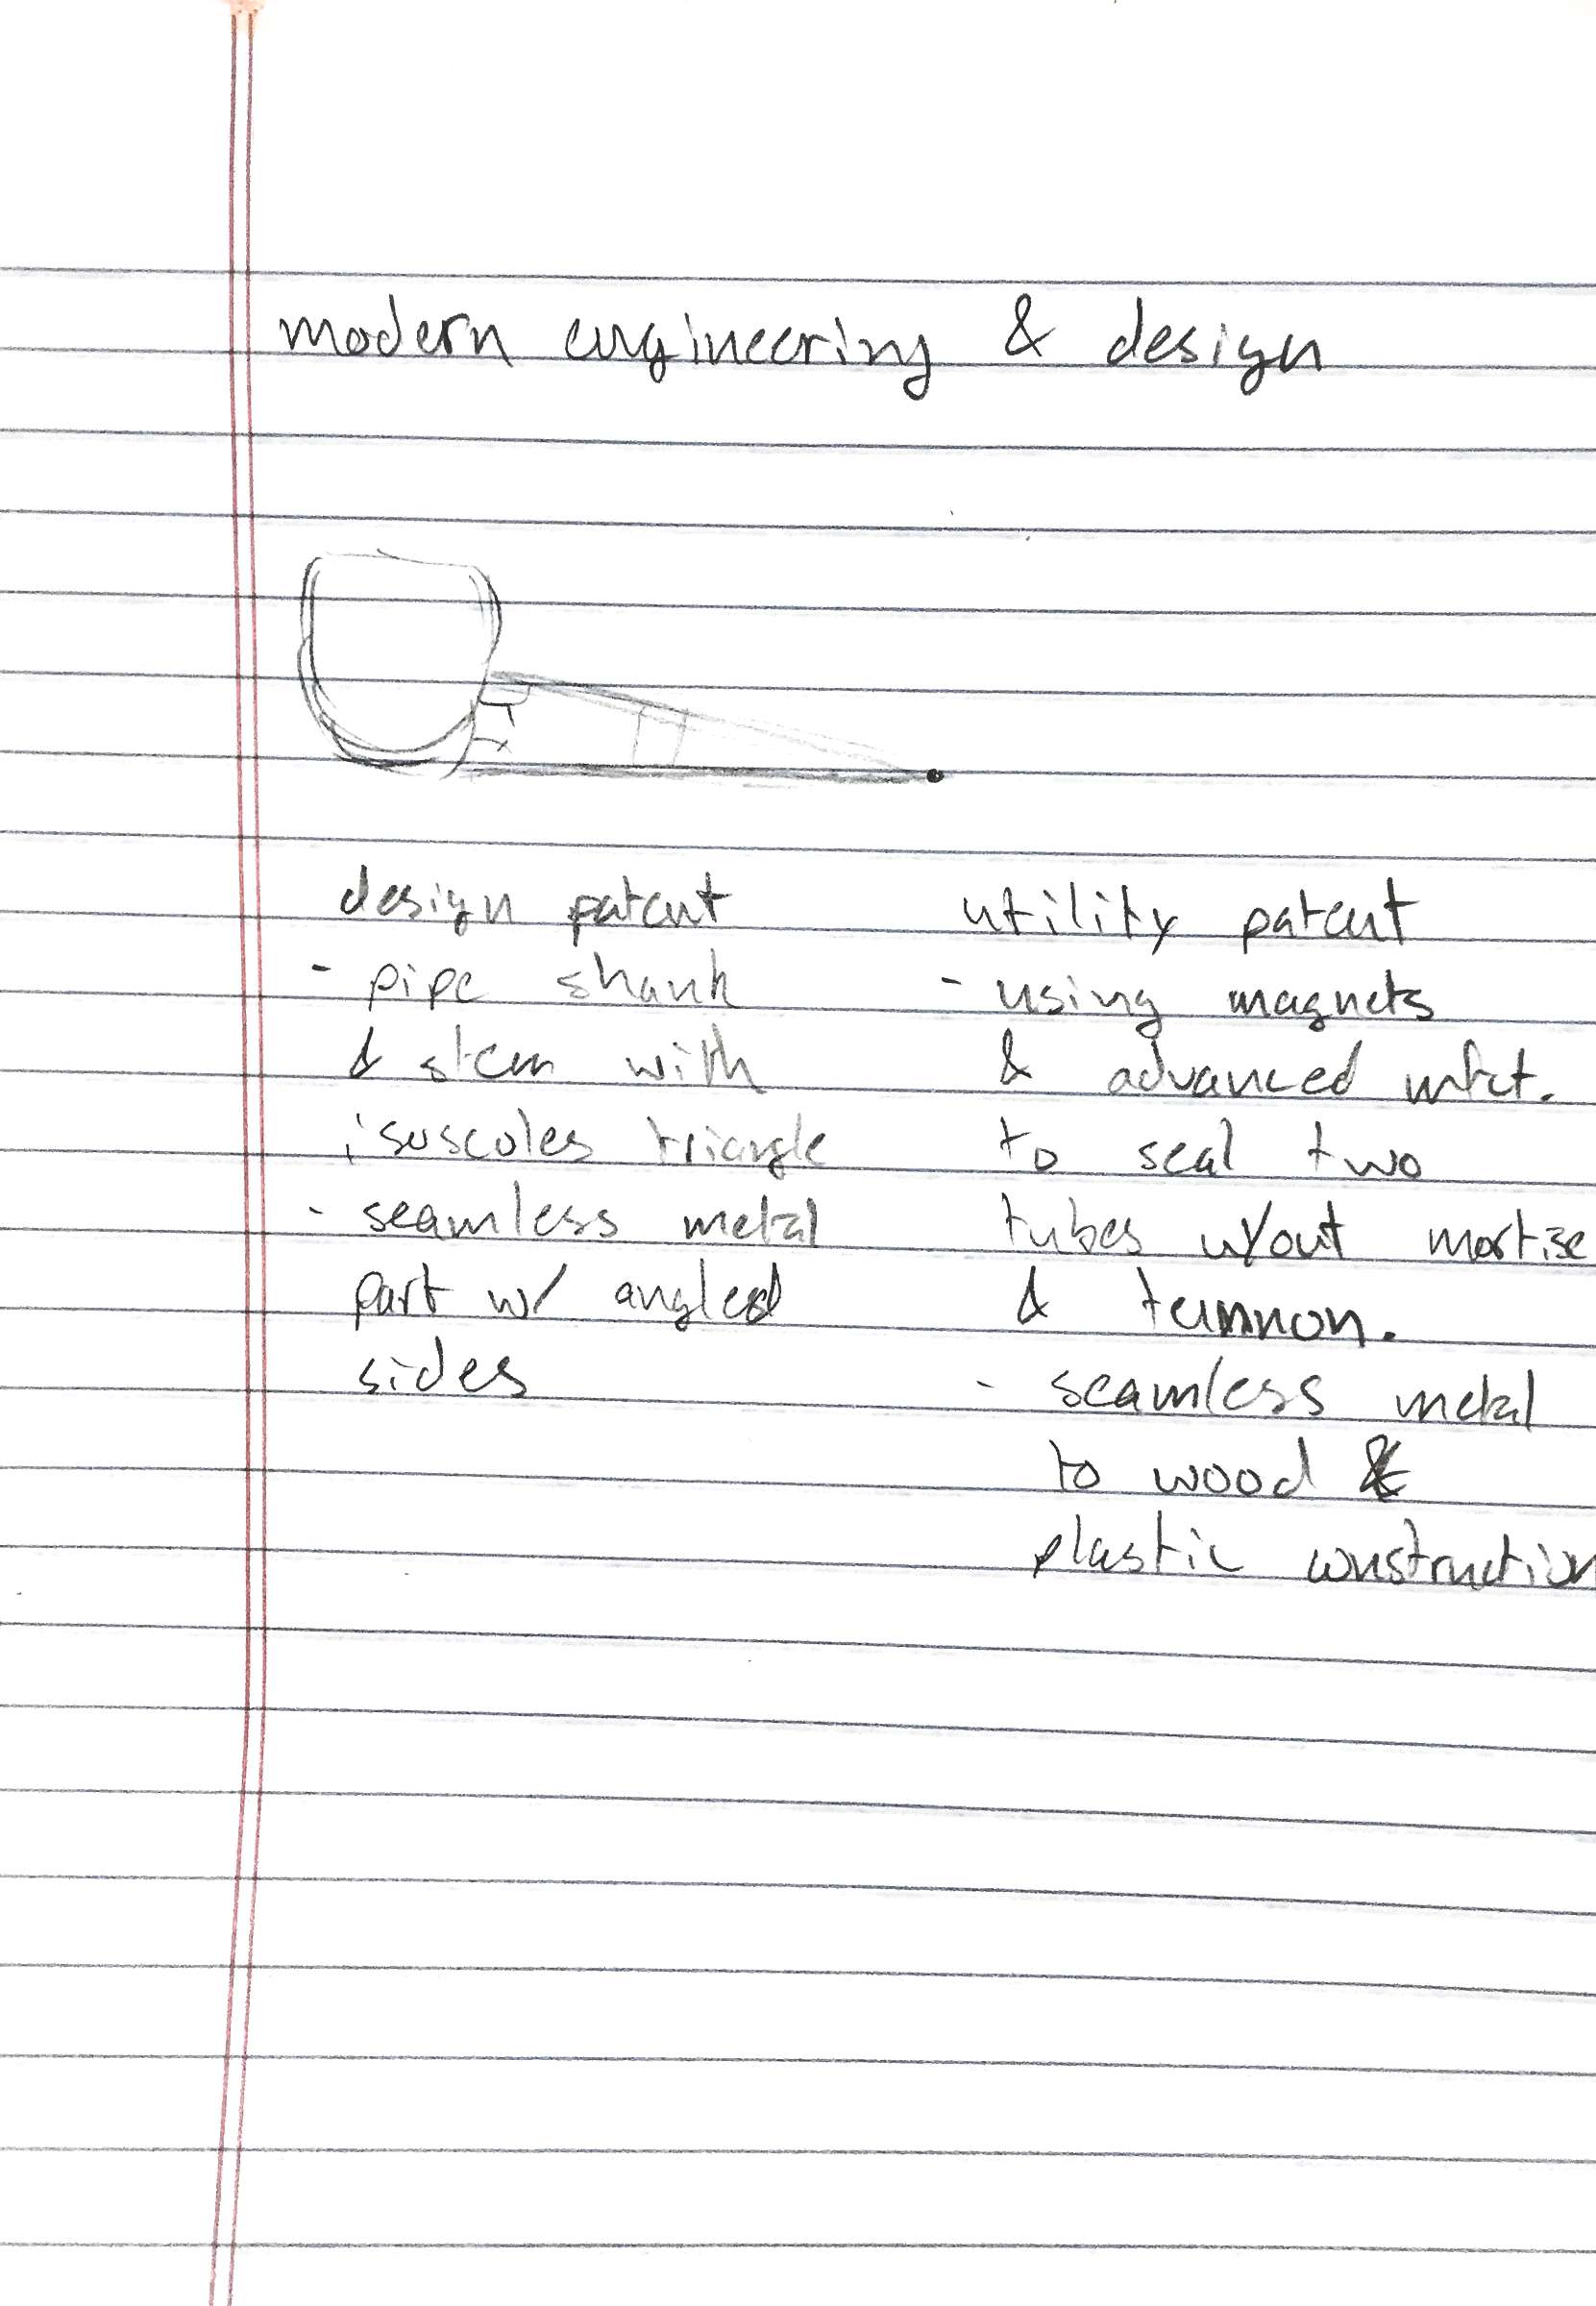 modern engineering & design
design patent
- pipe shank
& stem with
isoscoles triangle
- seamless metal
part w/ angled
sides
utility patent
- using magnets
& advanced mfct.
to seal two
tubes w/out mortise
& tennon.
- seamless metal
to wood &
plastic construction